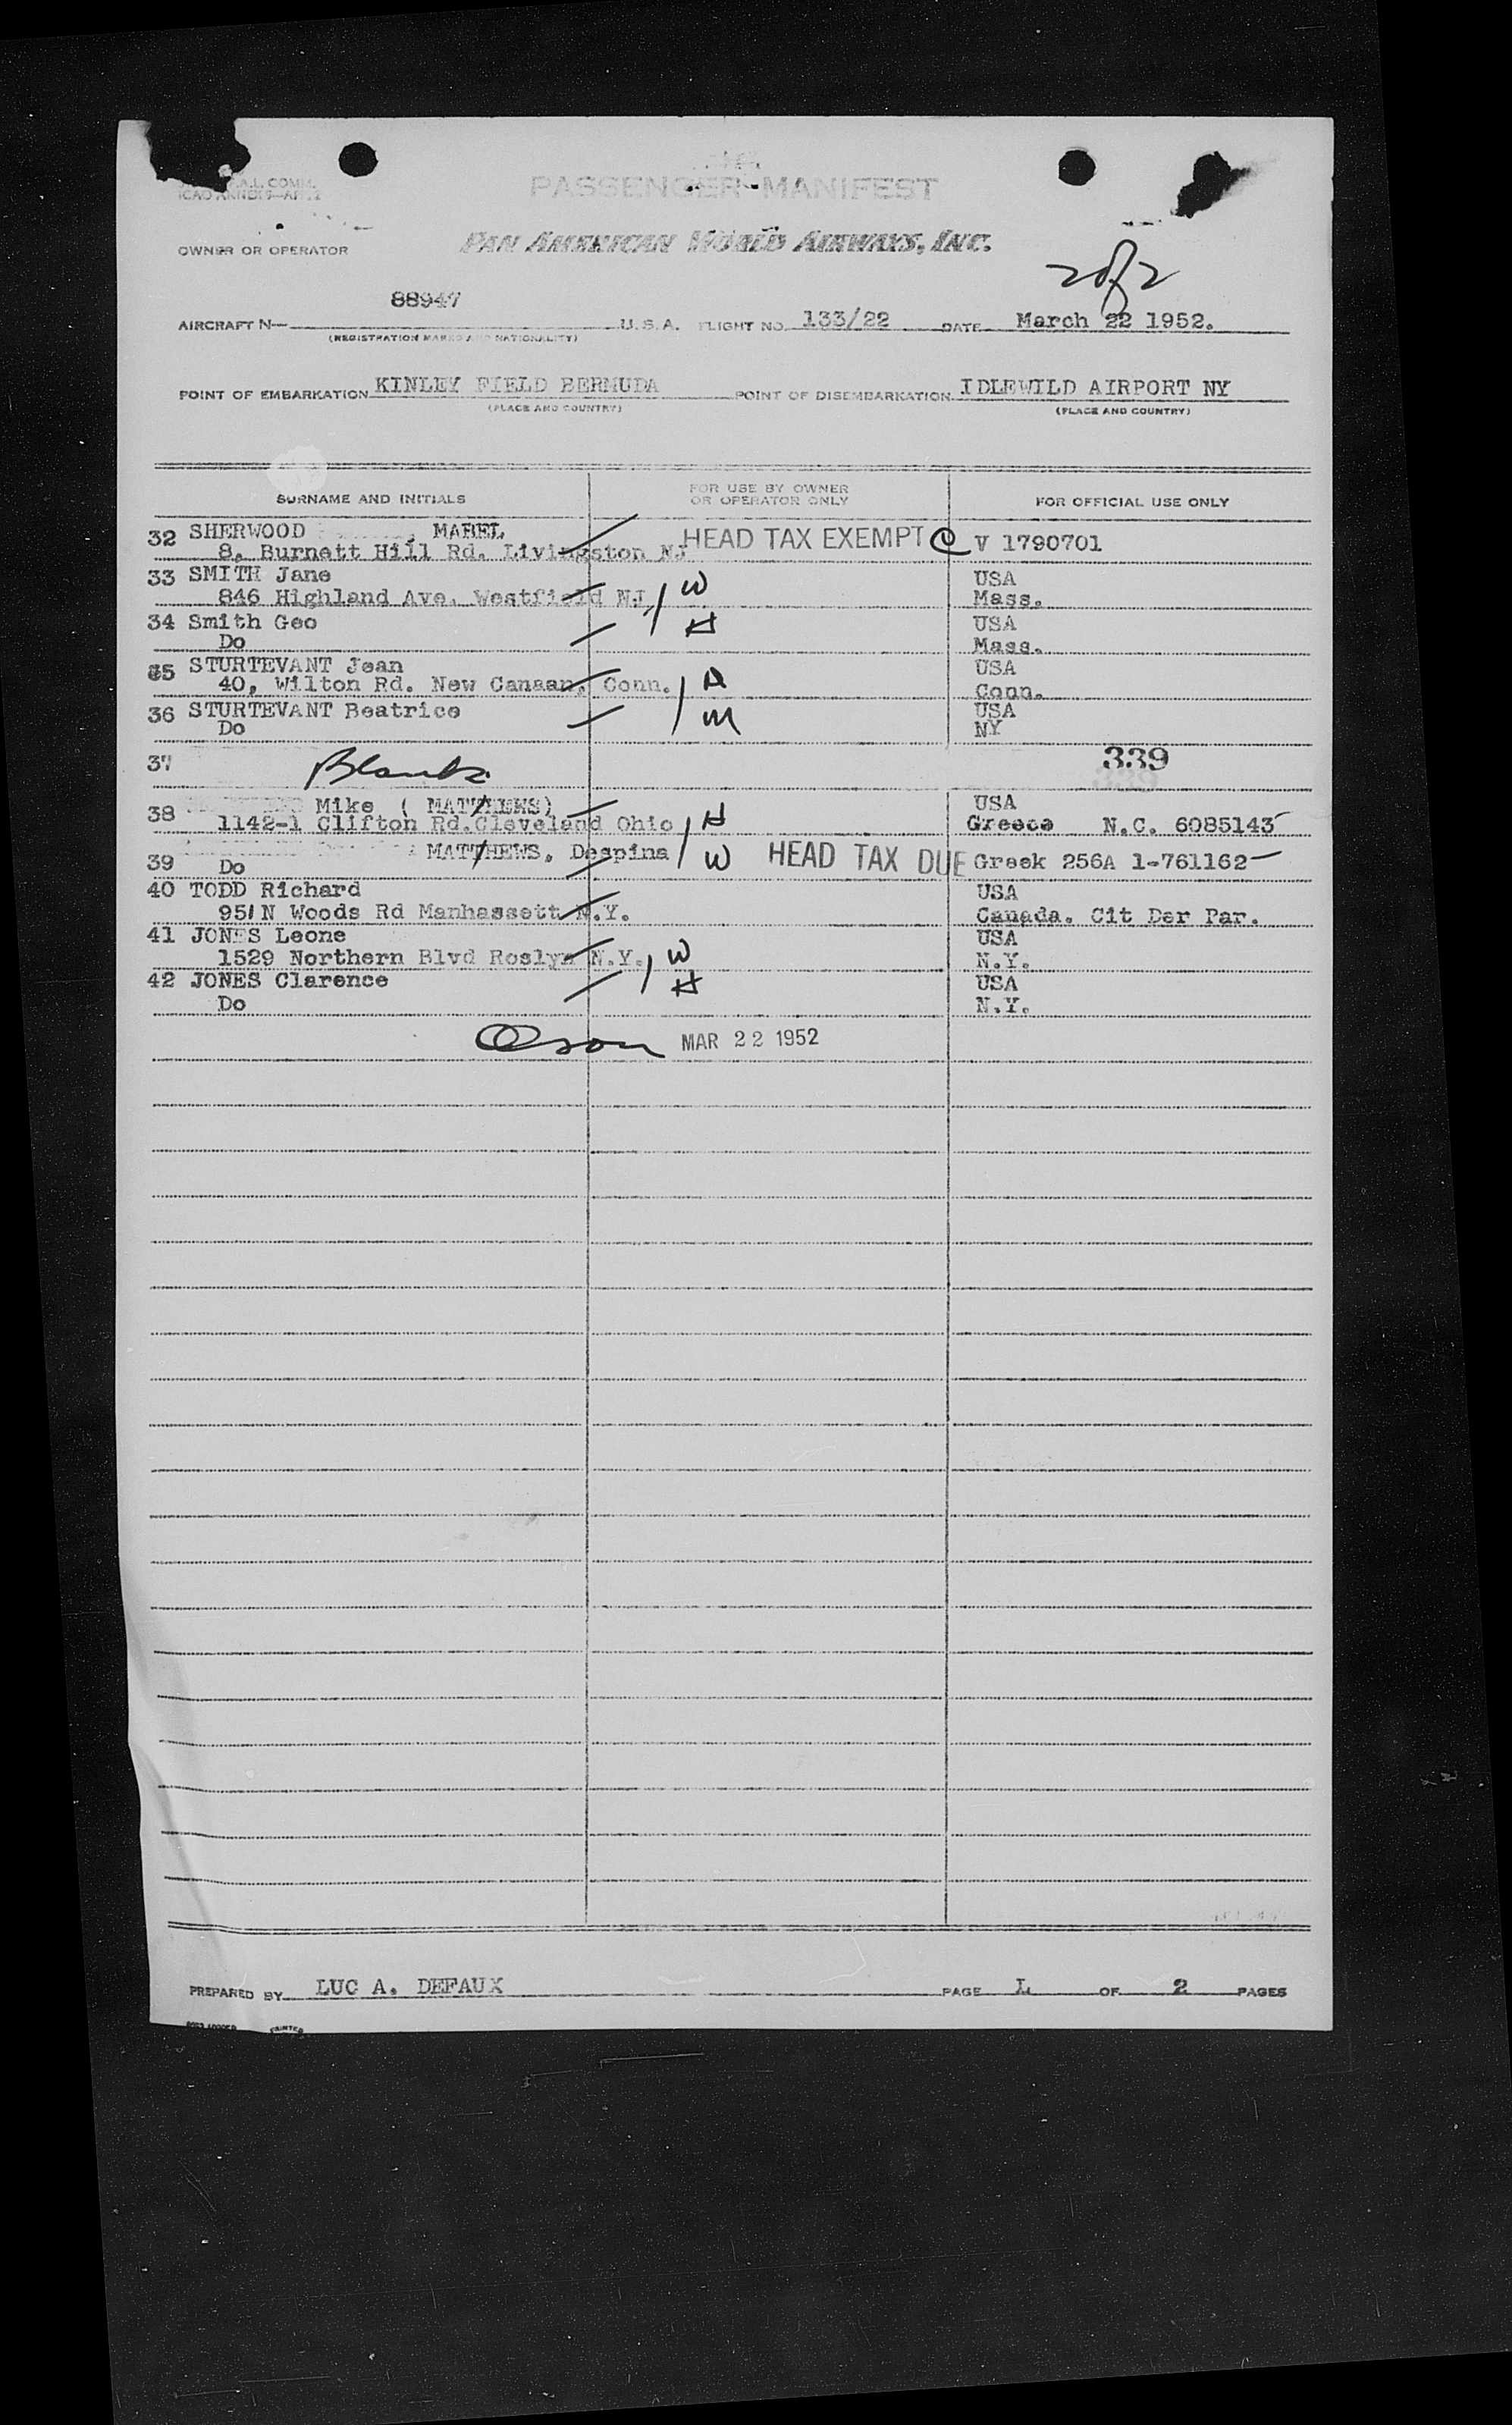 A.L. COMM.
PASSENGER MANIFEST
OWNER OR OPERATOR PAN AMERICAN WORLD AIRWAYS, INC.
2 of 2
AIRCRAFT N— 88947 U.S.A. FLIGHT NO. 133/22 DATE March 22 1952.
(REGISTRATION MARKS AND NATIONALITY)
POINT OF EMBARKATION KINLEY FIELD BERMUDA POINT OF DISEMBARKATION IDLEWILD AIRPORT NY
(PLACE AND COUNTRY) (PLACE AND COUNTRY)
SURNAME AND INITIALS FOR USE BY OWNER OR OPERATOR ONLY FOR OFFICIAL USE ONLY
32 SHERWOOD , MABEL HEAD TAX EXEMPT C V 1790701
8. Burnett Hill Rd. Livingston NJ
33 SMITH Jane W USA
846 Highland Ave. Westfield NJ Mass.
34 Smith Geo H USA
Do Mass.
35 STURTEVANT Jean USA
40, Wilton Rd. New Canaan, Conn. D Conn.
36 STURTEVANT Beatrice M USA
Do NY
37 Blank 339
38 Mike ( MATTHEWS) H USA
1142-1 Clifton Rd.Cleveland Ohio Greece N.C. 6085143
39 MATTHEWS, Despina W HEAD TAX DUE Greek 256A 1-761162
Do
40 TODD Richard USA
951 N Woods Rd Manhassett N.Y. Canada. Cit Der Par.
41 JONES Leone W USA
1529 Northern Blvd Roslyn N.Y. N.Y.
42 JONES Clarence H USA
Do N.Y.
Olson MAR 22 1952
PREPARED BY LUC A. DEFAUX PAGE L OF 2 PAGES